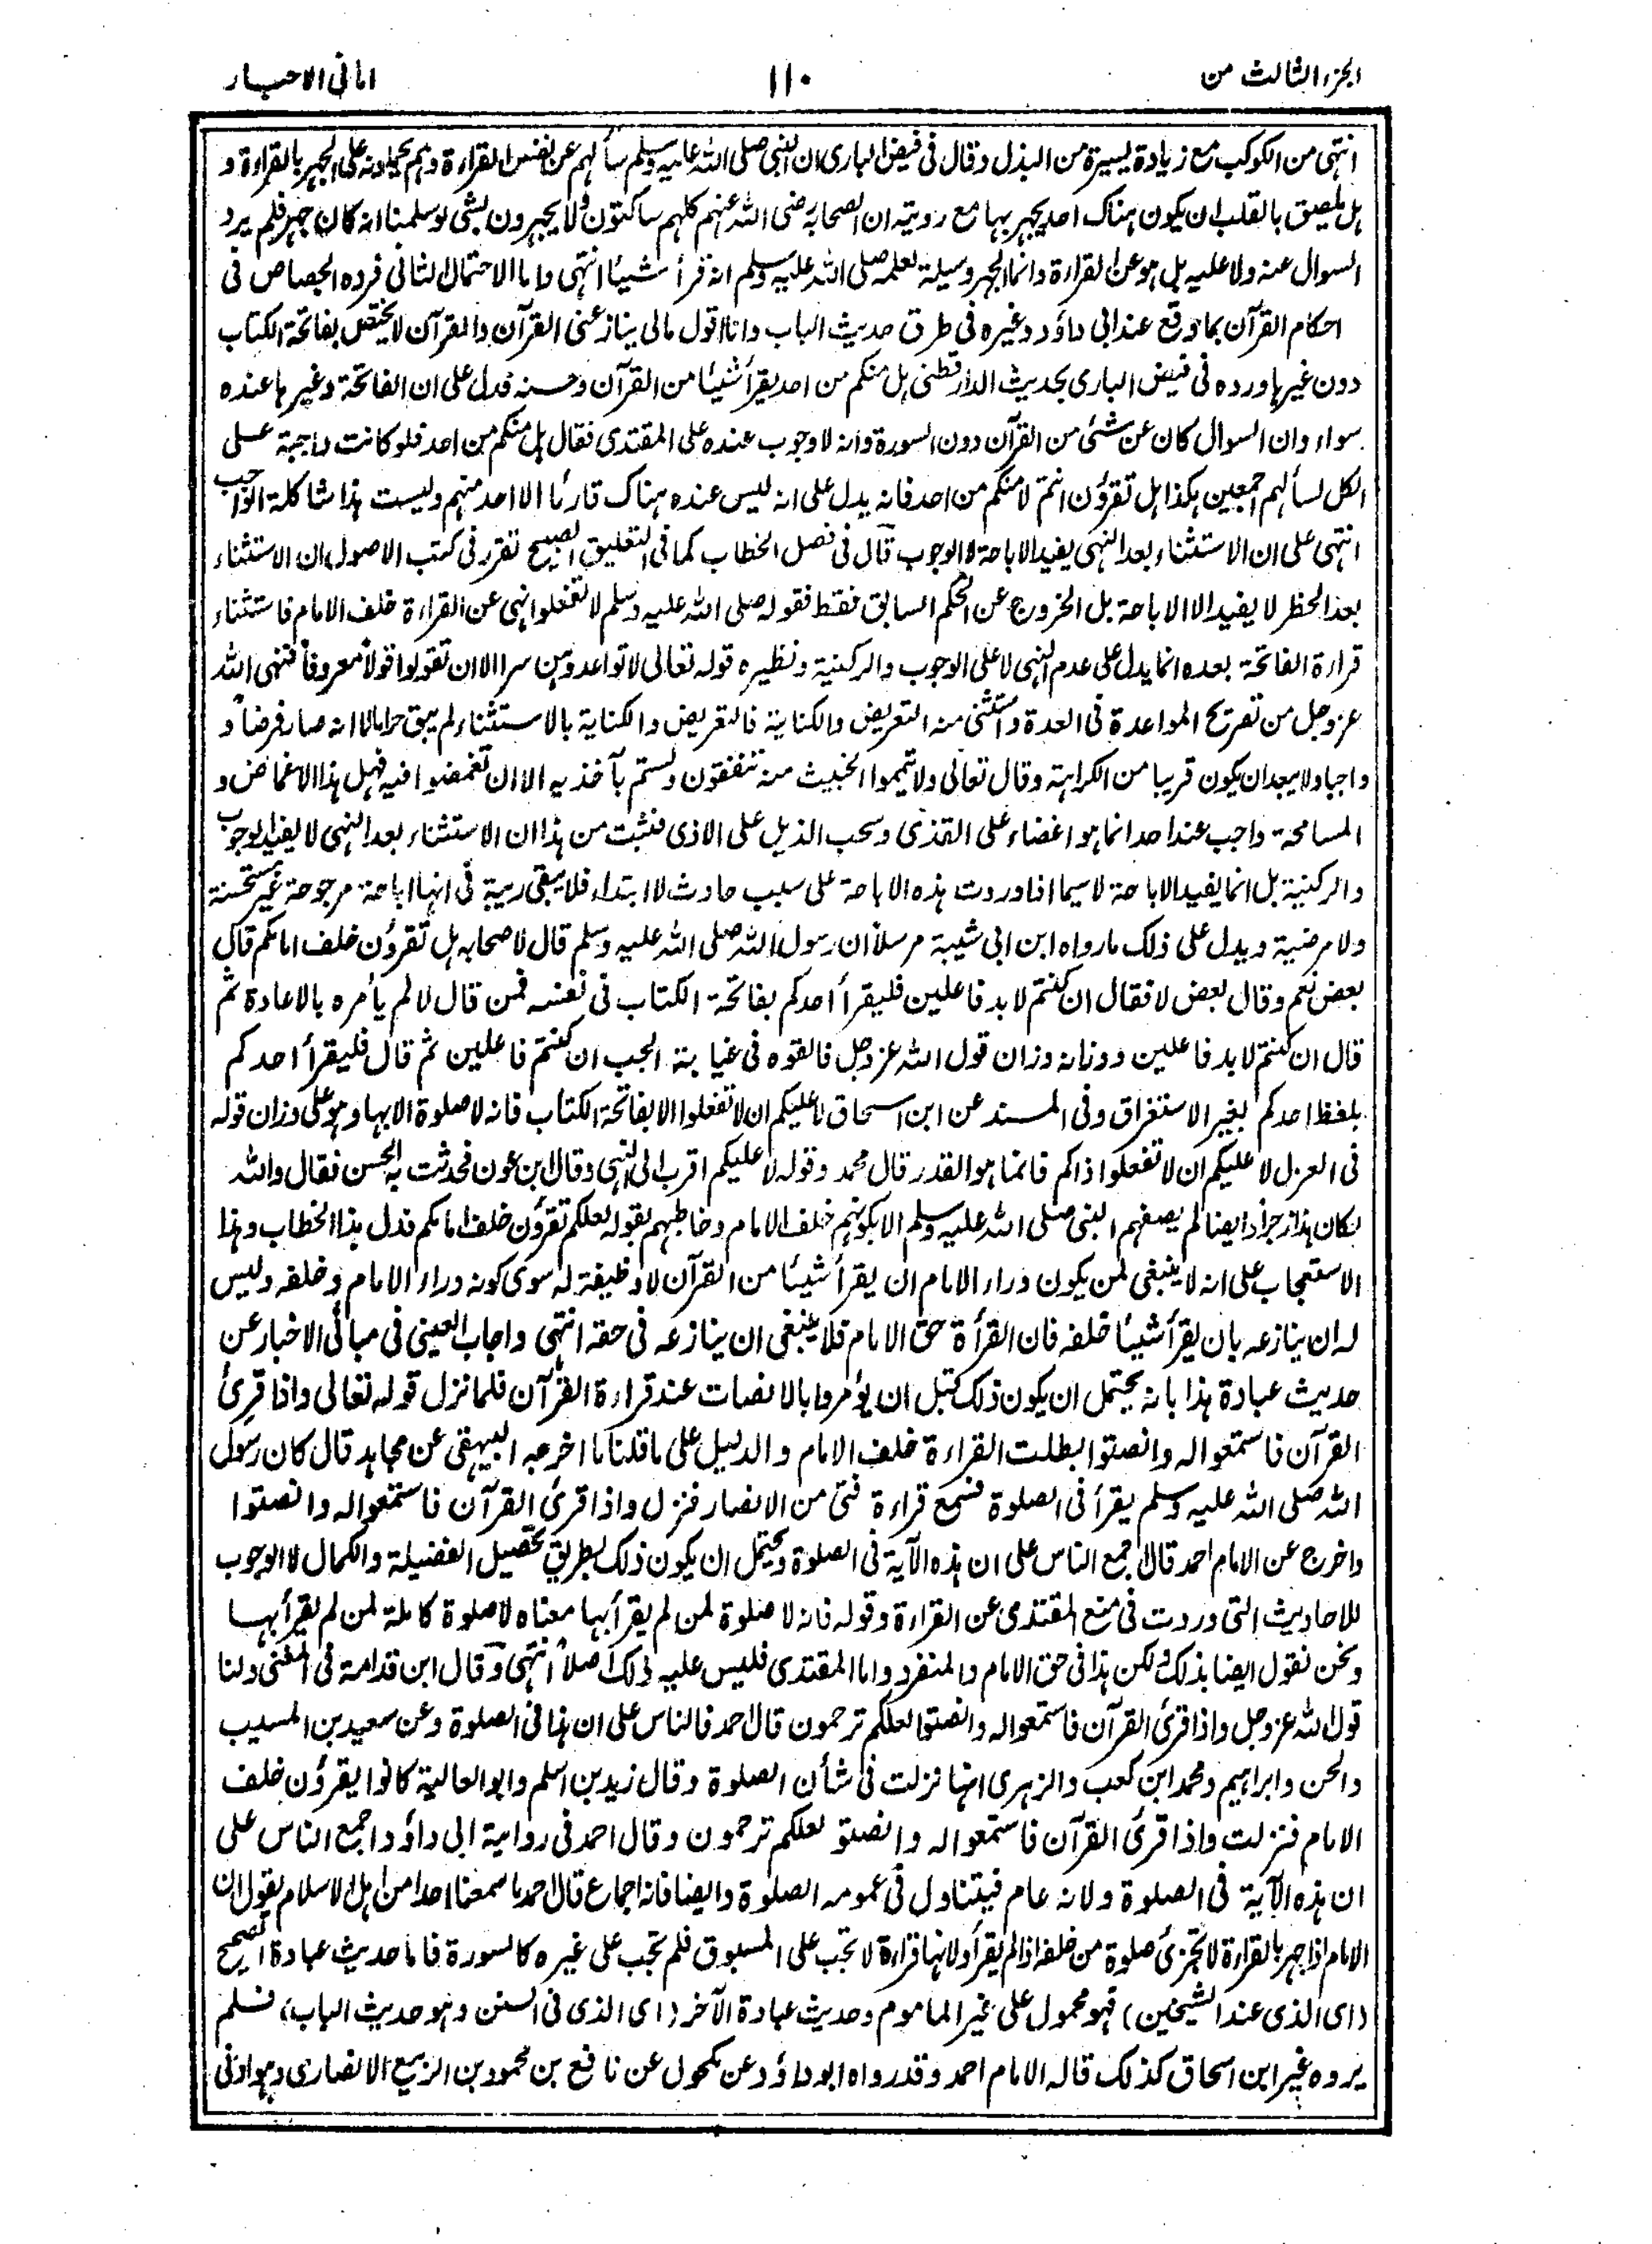 الجزء الثالث من
١١٠
امانی الاحبار
انتہی من الکوکب مع زیادة یسیرة من البذل وقال فی فیض الباری ان النبی صلی اللہ علیہ وسلم سألہم عن نفس القراءة وہم یحملونہ علی الجہر بالقراءة و
ہل یلصق بالقلب ان یکون ہناک احد یجہر بہا مع رویتہ ان الصحابة رضی اللہ عنہم کلہم ساکتون ولا یجہرون بشئ ولو سلمنا انہ کان جہر فلم یرد
السوال عنہ ولا علیہ بل ہو عن القراءة وانما الجہر وسیلة لعلمہ صلی اللہ علیہ وسلم انہ قرأ شیئا انتہی واما الاحتمال الثانی فردہ الجصاص فی
احکام القرآن بما وقع عند ابی داؤد وغیرہ فی طرق حدیث الباب وانا اقول مالی ینازعنی القرآن والقرآن لا یختص بفاتحة الکتاب
دون غیرہا وردہ فی فیض الباری بحدیث الدارقطنی ہل منکم من احد یقرأ شیئا من القرآن وحسنہ فدل علی ان الفاتحة وغیرہا عندہ
سواء وان السوال کان عن شئی من القرآن دون السورة وانہ لا وجوب عندہ علی المقتدی فقال ہل منکم من احد فلو کانت واجبة علی
الکل لسألہم اجمعین ہکذا ہل تقرؤن انتم لا منکم من احد فانہ یدل علی انہ لیس عندہ ہناک قارئا الا احد منہم ولیست ہذا شاکلة الواجب
انتہی علی ان الاستثناء بعد النہی یفید الاباحة لا الوجوب قال فی فصل الخطاب کما فی التعلیق الصبیح تقرر فی کتب الاصول ان الاستثناء
بعد الحظر لا یفید الا الاباحة بل الخروج عن الحکم السابق فقط فقولہ صلی اللہ علیہ وسلم لا تفعلوا نہی عن القراءة خلف الامام فاستثناء
قراءة الفاتحة بعدہ انما یدل علی عدم النہی لا علی الوجوب والرکنیة ونظیرہ قولہ تعالی لا تواعدوہن سرا الا ان تقولوا قولا معروفا فنہی اللہ
عزوجل من تصریح المواعدة فی العدة واستثنی منہ التعریض والکنایة فالتعریض والکنایة بالاستثناء لم یبق حراما لا انہ صار فرضا و
واجبا ولا یبعد ان یکون قریبا من الکراہة وقال تعالی ولا تیمموا الخبیث منہ تنفقون ولستم بآخذیہ الا ان تغمضوا فیہ فہل ہذا الاغماض و
المسامحة واجب عند احد انما ہو اغضاء علی القذی وسحب الذیل علی الاذی فثبت من ہذا ان الاستثناء بعد النہی لا یفید الوجوب
والرکنیة بل انما یفید الاباحة لا سیما اذا وردت ہذہ الاباحة علی سبب حادث لا ابتداء فلا یبقی ریبة فی انہا اباحة مرجوحة غیر مستحسنة
ولا مرضیة ویدل علی ذلک ما رواہ ابن ابی شیبة مرسلا ان رسول اللہ صلی اللہ علیہ وسلم قال لاصحابہ ہل تقرؤن خلف امامکم قال
بعض نعم وقال بعض لا فقال ان کنتم لا بد فاعلین فلیقرأ احدکم بفاتحة الکتاب فی نفسہ فمن قال لا لم یأمرہ بالاعادة ثم
قال ان کنتم لا بد فاعلین ووزانہ وزان قول اللہ عزوجل فالقوہ فی غیابة الجب ان کنتم فاعلین ثم قال فلیقرأ احدکم
بلفظ احدکم بغیر الاستغراق وفی المسند عن ابن اسحاق لا علیکم ان لا تفعلوا الا بفاتحة الکتاب فانہ لا صلوة الا بہا وہو علی وزان قولہ
فی العزل لا علیکم ان لا تفعلوا ذاکم فانما ہو القدر قال محمد وقولہ لا علیکم اقرب الی النہی وقال ابن عون فحدثت بہ الحسن فقال واللہ
لکان ہذا زجرا وایضا لم یصفہم النبی صلی اللہ علیہ وسلم الا بکونہم خلف الامام وخاطبہم بقولہ لعلکم تقرؤن خلف امامکم فدل ہذا الخطاب وہذا
الاستعجاب علی انہ لا ینبغی لمن یکون وراء الامام ان یقرأ شیئا من القرآن لا وظیفة لہ سوی کونہ وراء الامام وخلفہ ولیس
لہ ان ینازعہ بان یقرأ شیئا خلفہ فان القرأة حق الامام فلا ینبغی ان ینازعہ فی حقہ انتہی واجاب العینی فی مبانی الاخبار عن
حدیث عبادة ہذا بانہ یحتمل ان یکون ذلک قبل ان یؤمروا بالانصات عند قراءة القرآن فلما نزل قولہ تعالی واذا قرئ
القرآن فاستمعوا لہ وانصتوا بطلت القراءة خلف الامام والدلیل علی ما قلنا ما اخرجہ البیہقی عن مجاہد قال کان رسول
اللہ صلی اللہ علیہ وسلم یقرأ فی الصلوة فسمع قراءة فتی من الانصار فنزل واذا قرئ القرآن فاستمعوا لہ وانصتوا
واخرج عن الامام احمد قال اجمع الناس علی ان ہذہ الآیة فی الصلوة ویحتمل ان یکون ذلک بطریق تحصیل الفضیلة والکمال لا الوجوب
للاحادیث التی وردت فی منع المقتدی عن القراءة وقولہ فانہ لا صلوة لمن لم یقرأ بہا معناہ لا صلوة کاملة لمن لم یقرأ بہا
ونحن نقول ایضا بذلک ولکن ہذا فی حق الامام والمنفرد واما المقتدی فلیس علیہ ذلک اصلا انتہی وقال ابن قدامة فی المغنی ولنا
قول اللہ عزوجل واذا قرئ القرآن فاستمعوا لہ وانصتوا لعلکم ترحمون قال احمد فالناس علی ان ہذا فی الصلوة وعن سعید بن المسیب
والحسن وابراہیم ومحمد ابن کعب والزہری انہا نزلت فی شأن الصلوة وقال زید بن اسلم وابو العالیة کانوا یقرؤن خلف
الامام فنزلت واذا قرئ القرآن فاستمعوا لہ وانصتو لعلکم ترحمون وقال احمد فی روایة ابی داؤد اجمع الناس علی
ان ہذہ الآیة فی الصلوة ولانہ عام فیتناول فی عمومہ الصلوة وایضا فانہ اجماع قال احمد ما سمعنا احدا من اہل الاسلام یقول ان
الامام اذا جہر بالقراءة لا تجزئ صلوة من خلفہ اذا لم یقرأ ولانہا قراءة لا تجب علی المسبوق فلم تجب علی غیرہ کالسورة فاما حدیث عبادة الصحیح
(ای الذی عند الشیخین) فہو محمول علی غیر الماموم وحدیث عبادة الآخر (ای الذی فی السنن وہو حدیث الباب) فلم
یروہ غیر ابن اسحاق کذلک قالہ الامام احمد وقد رواہ ابو داؤد عن مکحول عن نافع بن محمود بن الربیع الانصاری وہو ادنی